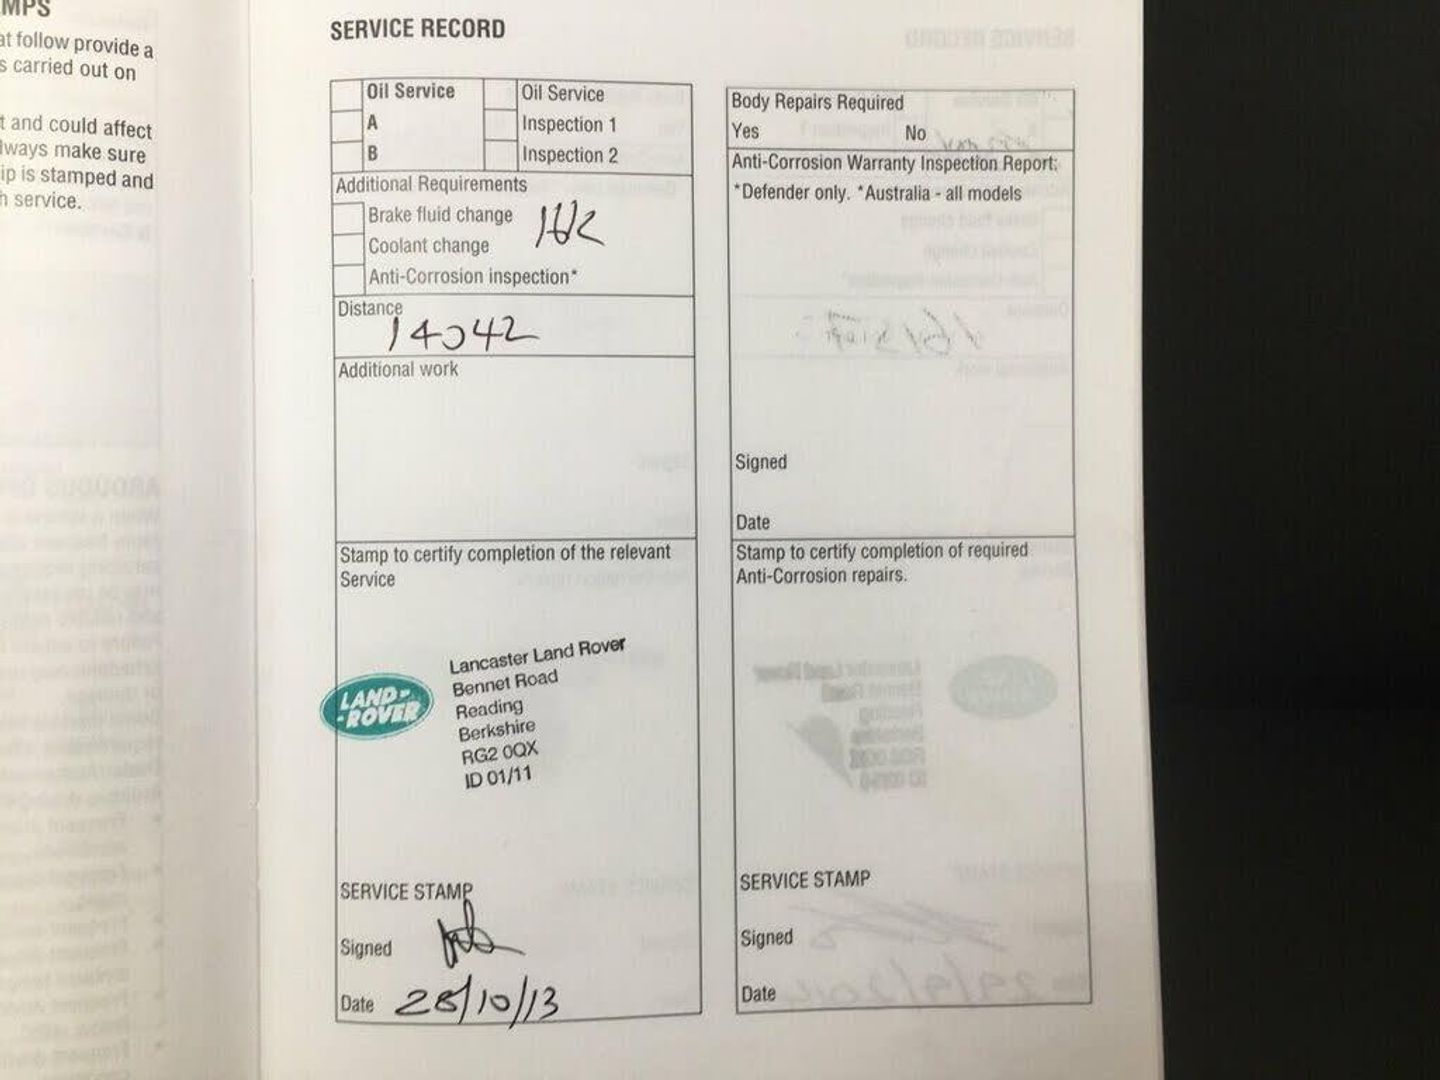 MPS
at follow provide a
s carried out on
t and could affect
lways make sure
ip is stamped and
h service.
SERVICE RECORD
Oil Service
Oil Service
A
Inspection 1
B
Inspection 2
Additional Requirements
Brake fluid change
Coolant change
Anti-Corrosion inspection*
Distance
14042
Additional work
Stamp to certify completion of the relevant
Service
LAND-
-ROVER
Lancaster Land Rover
Bennet Road
Reading
Berkshire
RG2 0QX
ID 01/11
SERVICE STAMP
Signed
Date 28/10/13
Body Repairs Required
Yes No
Anti-Corrosion Warranty Inspection Report:
*Defender only. *Australia - all models
Signed
Date
Stamp to certify completion of required
Anti-Corrosion repairs.
SERVICE STAMP
Signed
Date